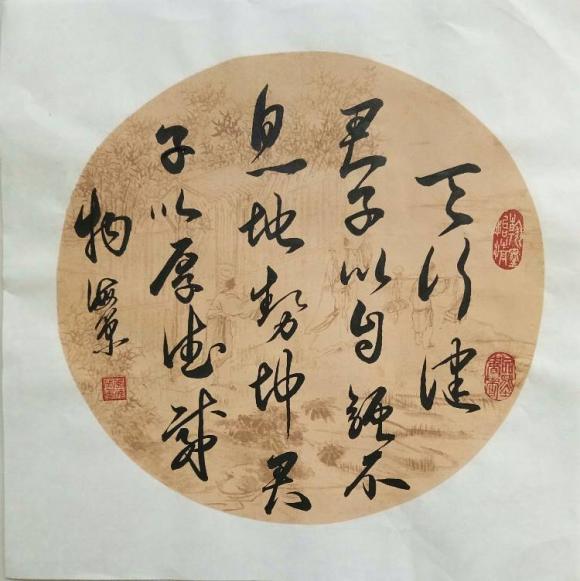 天行健
君子以自强不
息地势坤君
子以厚德载
物